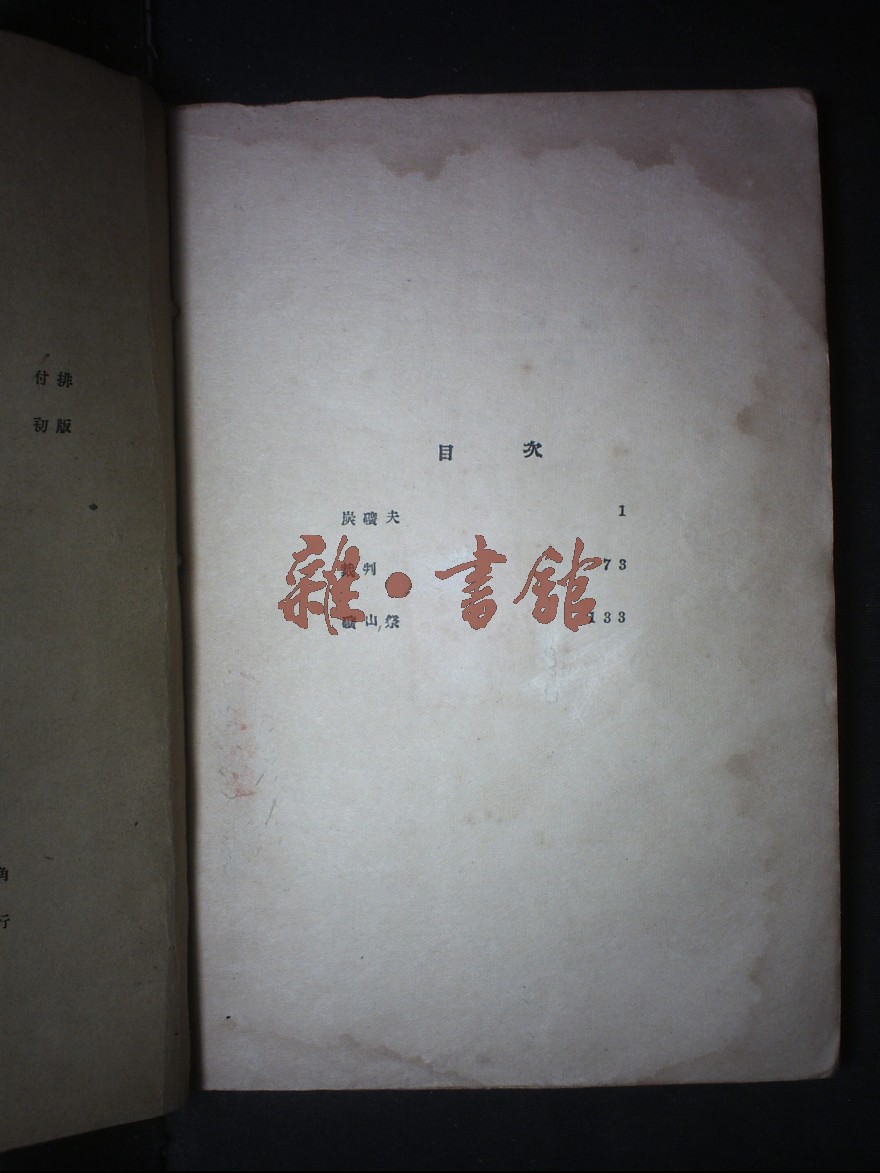 付排
初版
角
行
目 次
炭礦夫 1
裁判 73
礦山祭 133
雜·書館